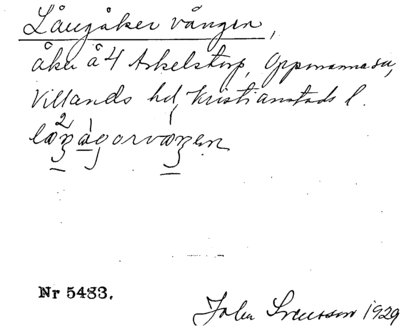 Långåker vången,
åker å 4 Arkelstorp, Oppmanna sn,
Villands hd, Kristianstads l.
Nr 5483.
John Svensson 1929